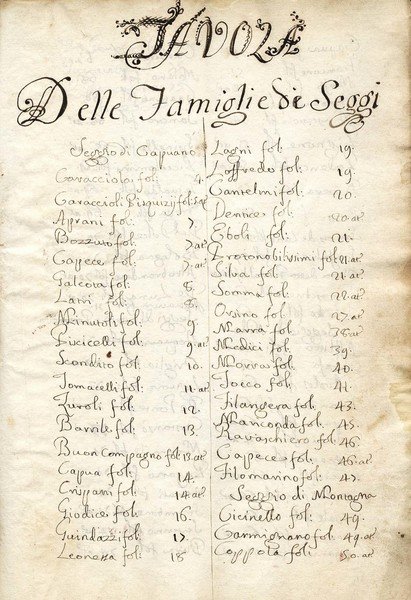 TAVOLA
Delle Famiglie di Seggi
Seggio di Capuano
Caraccioloi fol: 4.
Caraccioli Bisquizij fol:
Aprani fol: 7.
Bozzuto fol: 7 at.
Capece fol: 7. at.
Galeota fol: 8.
Latri fol: 8.
Minutoli fol: 9.
Piscicelli fol: 9. at.
Scondito fol: 10.
Tomacelli fol: 11. at.
Zuroli fol: 12.
Barrile fol: 13.
Buon Compagno fol: 13. at.
Capua fol: 14.
Crispani fol: 14. at.
Giudice fol: 16.
Guindazzi fol: 17.
Leonessa fol: 18
Lagni fol: 19.
Loffredo fol: 19.
Cantelmi fol: 20.
Dentice fol: 20. at.
Eboli fol: 21.
Protonobilissimi fol: 21 at.
Silva fol: 21. at.
Somma fol: 22. at.
Orsino fol: 27. at.
Marra fol: 38. at.
Medici fol: 39.
Morra fol: 40.
Tocco fol: 41.
Filangera fol: 43.
Manconda fol: 45.
Ravaschiero fol: 46.
Capece fol: 46. at.
Filomarino fol: 47.
Seggio di Montagna
Cicinello fol: 49.
Carmignano fol: 49. at.
Coppola fol: 50. at.